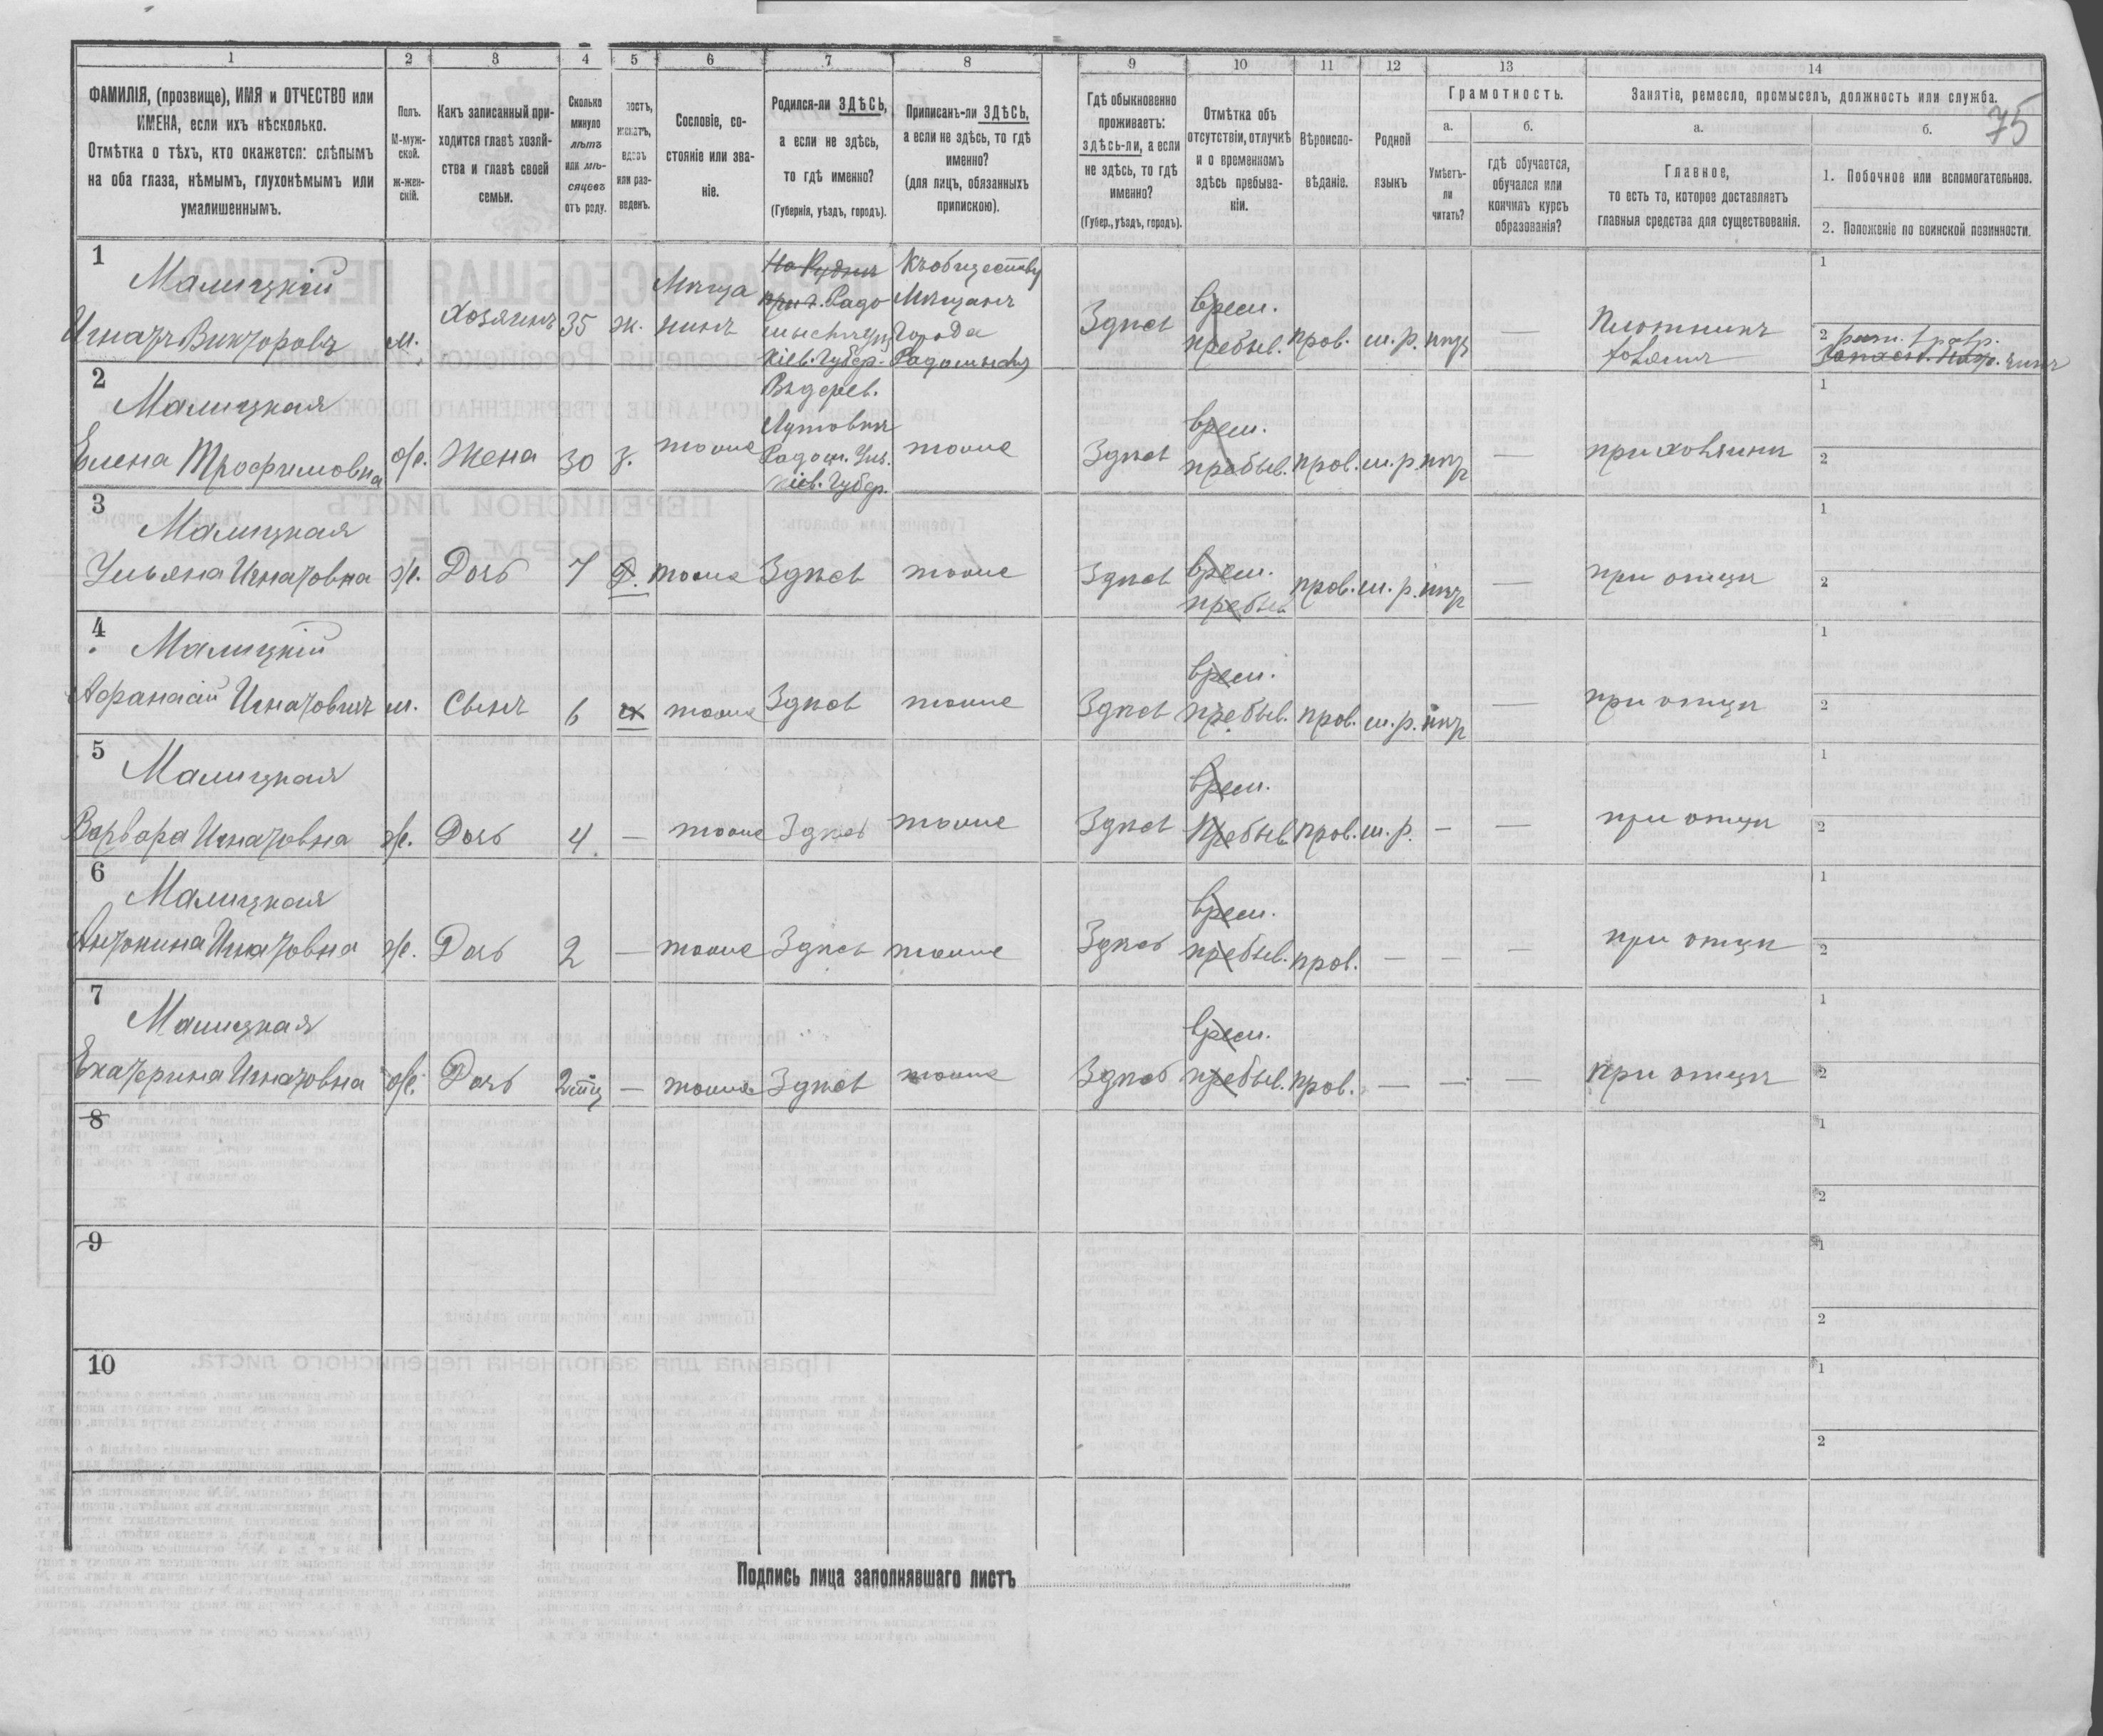 1 2 3 4 5 6 7 8 9 10 11 12 13 14
ФАМИЛІЯ, (прозвище), ИМЯ и ОТЧЕСТВО или
ИМЕНА, если ихъ нѣсколько.
Отмѣтка о тѣхъ, кто окажется: слѣпымъ
на оба глаза, нѣмымъ, глухонѣмымъ или
умалишеннымъ.
Полъ.
М-муж-
ской.
ж-жен-
скій.
Какъ записанный при-
ходится главѣ хозяй-
ства и главѣ своей
семьи.
Сколько
минуло
лѣтъ
или мѣ-
сяцевъ
отъ роду.
ростъ,
женатъ,
вдовъ
или раз-
веденъ.
Сословіе, со-
стояніе или зва-
ніе.
Родился-ли ЗДѢСЬ,
а если не здѣсь,
то гдѣ именно?
(Губернія, уѣздъ, городъ).
Приписанъ-ли ЗДѢСЬ,
а если не здѣсь, то гдѣ
именно?
(для лицъ, обязанныхъ
припискою).
Гдѣ обыкновенно
проживаетъ:
здѣсь-ли, а если
не здѣсь, то гдѣ
именно?
(Губер., уѣздъ, городъ).
Отмѣтка объ
отсутствіи, отлучкѣ
и о временномъ
здѣсь пребыва-
ніи.
Вѣроиспо-
вѣданіе.
Родной
языкъ
Грамотность.
а.
Умѣетъ-
ли
читать?
б.
гдѣ обучается,
обучался или
кончилъ курсъ
образованія?
Занятіе, ремесло, промыселъ, должность или служба.
75
а.
Главное,
то есть то, которое доставляетъ
главныя средства для существованія.
б.
1. Побочное или вспомогательное.
2. Положеніе по воинской повинности.
1
Малицкій
Игнатъ Викторовъ
м.
Хозяинъ
35
ж.
Мѣща
нинъ
Радо
Кіев. Губер.
Къ обществу
Мѣщанъ
Города
Радомысля
Здѣсь
врем.
пребыв.
прав.
м.р.
нѣт
—
Плотникъ
хозяинъ
1
2
2
Малицкая
Елена Трофимовна
ж.
Жена
30
з.
тоже
Въ дерев.
Кіев. Губер.
тоже
Здѣсь
врем.
пребыв.
прав.
м.р.
нѣт
—
при хозяинѣ
1
2
3
Малицкая
Ульяна Игнатовна
ж.
Дочь
7
Д.
тоже
Здѣсь
тоже
Здѣсь
врем.
пребыв
прав.
м.р.
нѣт
—
при отцѣ
1
2
4
Малицкій
Афанасій Игнатовичъ
м.
Сынъ
6
х
тоже
Здѣсь
тоже
Здѣсь
врем.
пребыв.
прав.
м.р.
нѣт
—
при отцѣ
1
2
5
Малицкая
Варвара Игнатовна
ж.
Дочь
4
—
тоже
Здѣсь
тоже
Здѣсь
врем.
пребыв.
прав.
м.р.
—
—
при отцѣ
1
2
6
Малицкая
Антонина Игнатовна
ж.
Дочь
2
—
тоже
Здѣсь
тоже
Здѣсь
врем.
пребыв.
прав.
—
—
—
при отцѣ
1
2
7
Малицкая
Екатерина Игнатовна
ж.
Дочь
2 мѣц
—
тоже
Здѣсь
тоже
Здѣсь
врем.
пребыв.
прав.
—
—
—
при отцѣ
1
2
8
1
2
9
1
2
10
1
2
Подпись лица заполнявшаго листъ